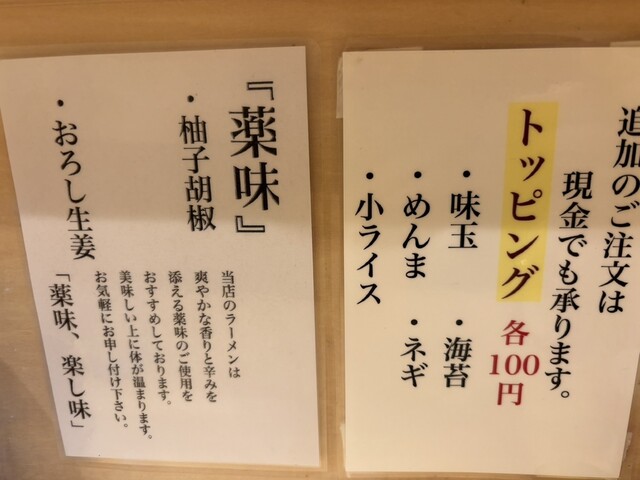 追加のご注文は
現金でも承ります。
トッピング 各100円
・味玉 ・海苔
・めんま ・ネギ
・小ライス
『薬味』
・柚子胡椒
・おろし生姜
当店のラーメンは
爽やかな香りと辛みを
添える薬味のご使用を
おすすめしております。
美味しい上に体が温まります。
お気軽にお申し付け下さい。
「薬味、楽し味」